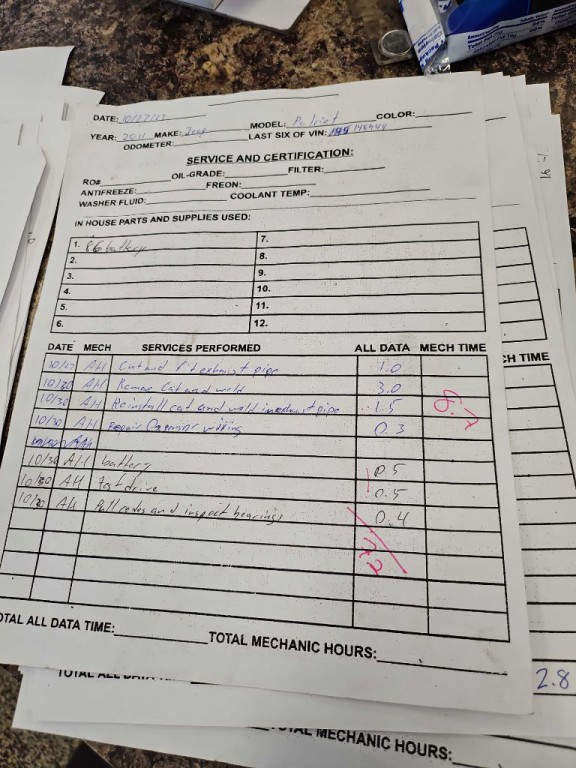 DATE: 10/27/23
MODEL: Patriot COLOR:
YEAR: 2011 MAKE: Jeep LAST SIX OF VIN:
ODOMETER:
SERVICE AND CERTIFICATION:
RO# OIL-GRADE: FILTER:
ANTIFREEZE: FREON:
WASHER FLUID: COOLANT TEMP:
IN HOUSE PARTS AND SUPPLIES USED:
1. 86 battery 7.
2. 8.
3. 9.
4. 10.
5. 11.
6. 12.
DATE MECH SERVICES PERFORMED ALL DATA MECH TIME
10/27 AH Cut and exhaust pipe 1.0
10/30 AH Remove Cat and weld 3.0
10/30 AH Reinstall cat and weld exhaust pipe 1.5
10/30 AH Repair wiring 0.3
10/30 AH battery 0.5
10/30 AH Test drive 0.5
10/30 AH Pull codes and inspect bearings 0.4
OTAL ALL DATA TIME: TOTAL MECHANIC HOURS:
CH TIME
2.8
MECHANIC HOURS: